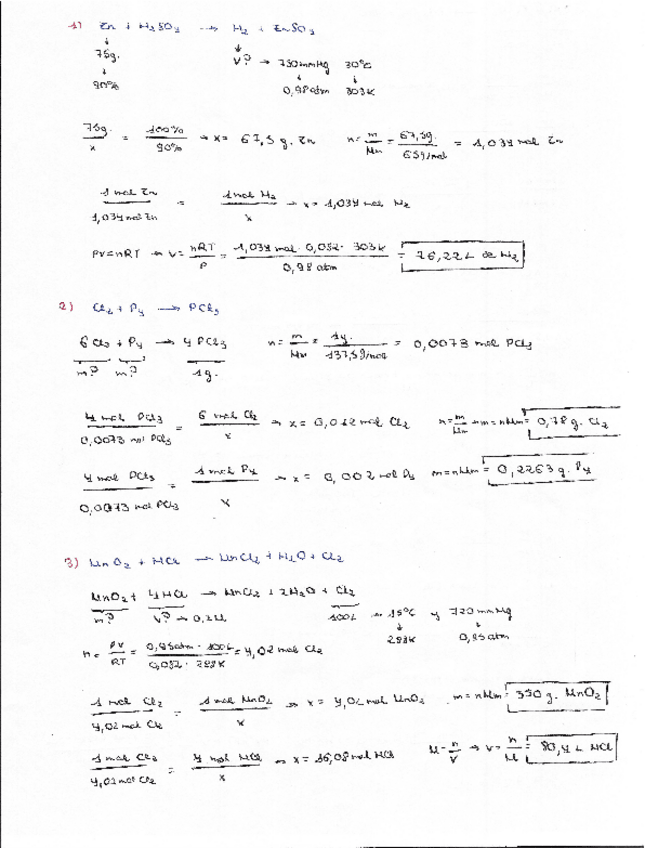 1) Zn + H₂SO₄ → H₂ + ZnSO₄
75g. V? → 750 mmHg 30ºC
90% 0,98 atm 303K
75g. / x = 100% / 90% → x = 67,5 g. Zn n = m / Mm = 67,5g. / 65g/mol = 1,034 mol Zn
1 mol Zn / 1,034 mol Zn = 1 mol H₂ / x → x = 1,034 mol H₂
PV = nRT → V = nRT / P = 1,034 mol · 0,082 · 303K / 0,98 atm = 26,22 L de H₂
2) Cl₂ + P₄ → PCl₃
6 Cl₂ + P₄ → 4 PCl₃ n = m / Mm = 1g. / 137,5g/mol = 0,0073 mol PCl₃
m? m? 1g.
4 mol PCl₃ / 0,0073 mol PCl₃ = 6 mol Cl₂ / x → x = 0,012 mol Cl₂ n = m / Mm → m = nMm = 0,78 g. Cl₂
4 mol PCl₃ / 0,0073 mol PCl₃ = 1 mol P₄ / x → x = 0,002 mol P₄ m = nMm = 0,2263 g. P₄
3) MnO₂ + HCl → MnCl₂ + H₂O + Cl₂
MnO₂ + 4HCl → MnCl₂ + 2H₂O + Cl₂
m? V? → 0,2M 100L → 15ºC y 720 mmHg
288K 0,95 atm
n = PV / RT = 0,95 atm · 100L / 0,082 · 288K = 4,02 mol Cl₂
1 mol Cl₂ / 4,02 mol Cl₂ = 1 mol MnO₂ / x → x = 4,02 mol MnO₂ m = nMm = 350 g. MnO₂
1 mol Cl₂ / 4,02 mol Cl₂ = 4 mol HCl / x → x = 16,08 mol HCl M = n / V → V = n / M = 80,4 L HCl